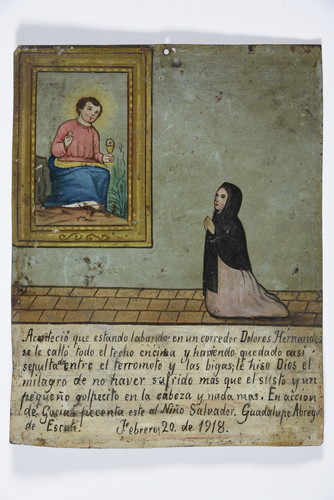 Aconteció que estando labando en un corredor Dolores Hernandes
se le calló todo el techo encima y haviendo quedado casi
sepultada entre el terromoto y las bigas; le hiso Dios el
milagro de no haver sufrido más que el susto y un
pequeño golpecito en la cabeza y nada mas. En acción
de Gracias precenta este al Niño Salvador. Guadalupe Abrego
de Escuta! Febrero 20. de 1918.